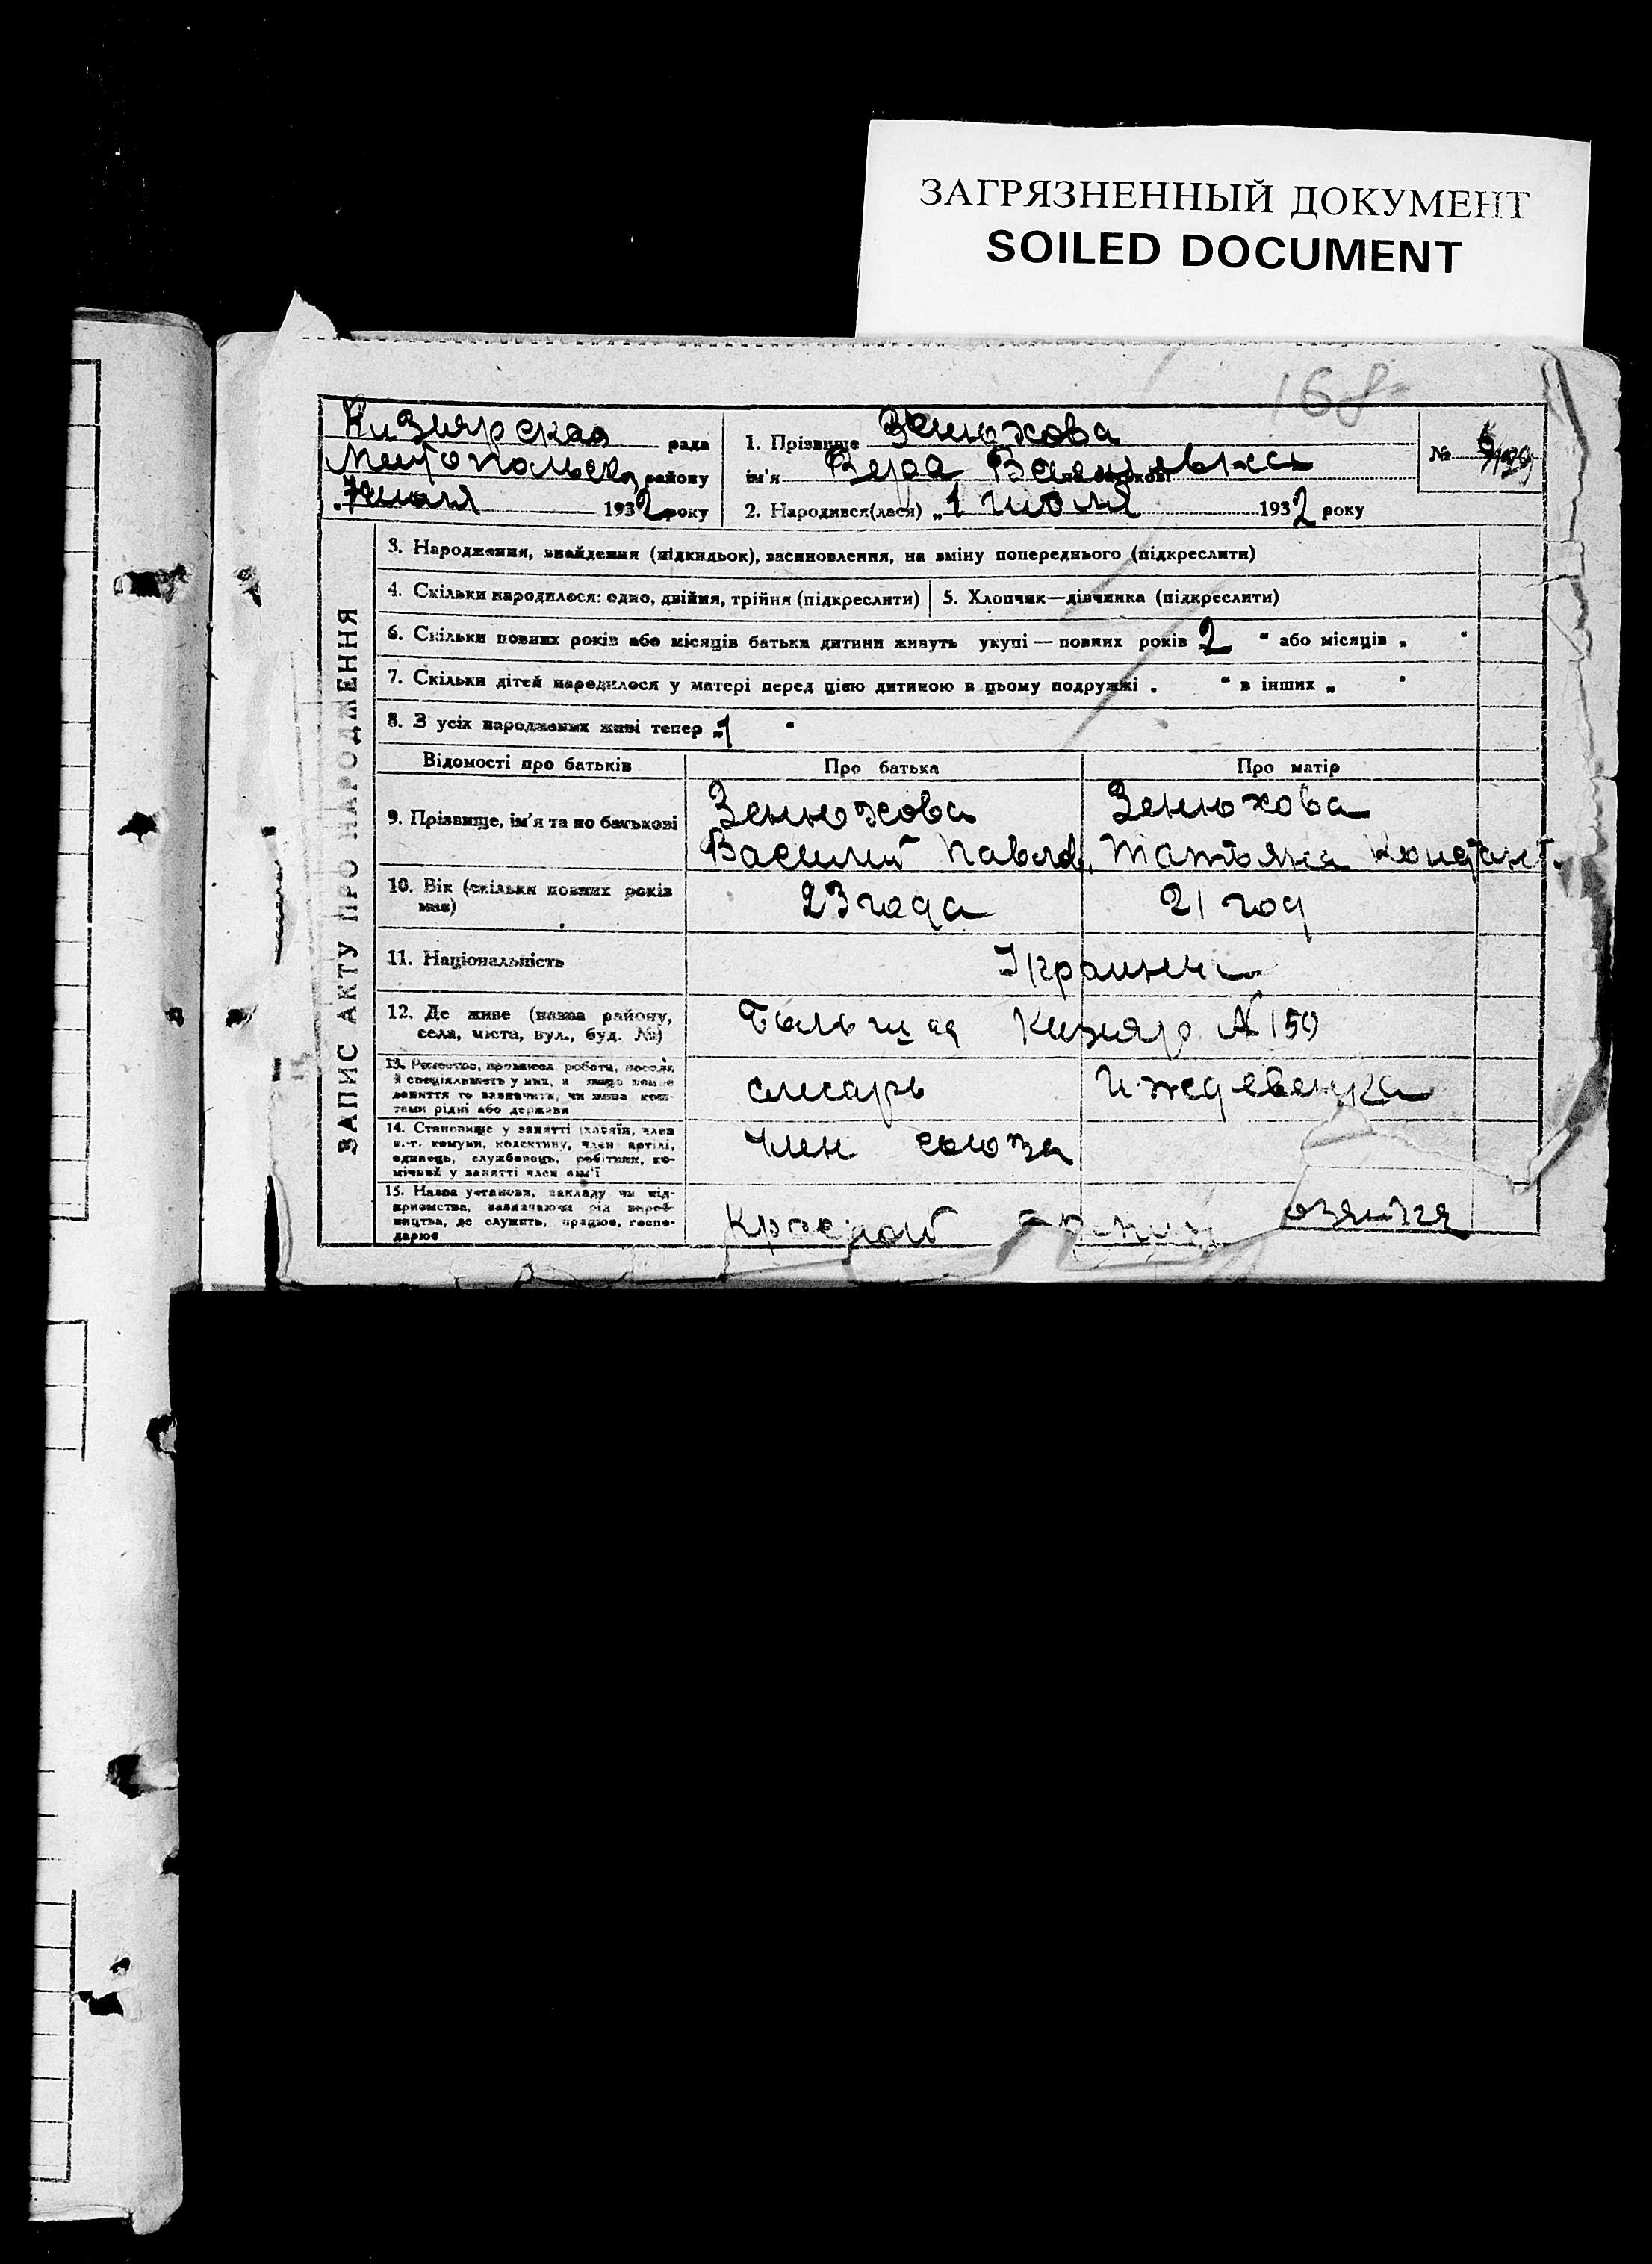 ЗАГРЯЗНЕННЫЙ ДОКУМЕНТ
SOILED DOCUMENT
168
Кизиярская рада
района
7 июля 1932 року
1. Прізвище Зенюхова
ім'я Вера по батькові
2. Народився(лася) „1 июля 1932 року
№
ЗАПИС АКТУ ПРО НАРОДЖЕННЯ
3. Народження, знайдення (підкидьок), засиновлення, на зміну попереднього (підкреслити)
4. Скільки народилося: одно, двійня, трійня (підкреслити)
5. Хлопчик—дівчинка (підкреслити)
6. Скільки повних років або місяців батьки дитини живуть укупі — повних років 2 “ або місяців „ “
7. Скільки дітей народилося у матері перед цією дитиною в цьому подружжі „ “ в інших „ “
8. З усіх народжених живі тепер „1 “
Відомості про батьків
Про батька
Про матір
9. Прізвище, ім'я та по батькові
Зенюхова
Василий Павлов.
Зенюхова
Татьяна Констант.
10. Вік (скільки повних років має)
23 года
21 год
11. Національність
Україн
12. Де живе (назва району,
села, міста, вул., буд. №)
Большая Кизияр № 159
13. Ремество, промисел, робота, посада
й спеціяльність у них, а якщо немає
заняття то зазначити, чи живе кош-
тами рідні або держави
слесарь
иждевенка
14. Становище у занятті (хазяїн, член
с.-г. комуни, колективу, член артілі,
одинець, службовець, робітник, по-
мічний у занятті член сім'ї
член союза
15. Назва установи, закладу чи під-
приємства, зазначаючи рід вироб-
ництва, де служить, працює, госпо-
дарює
Красной